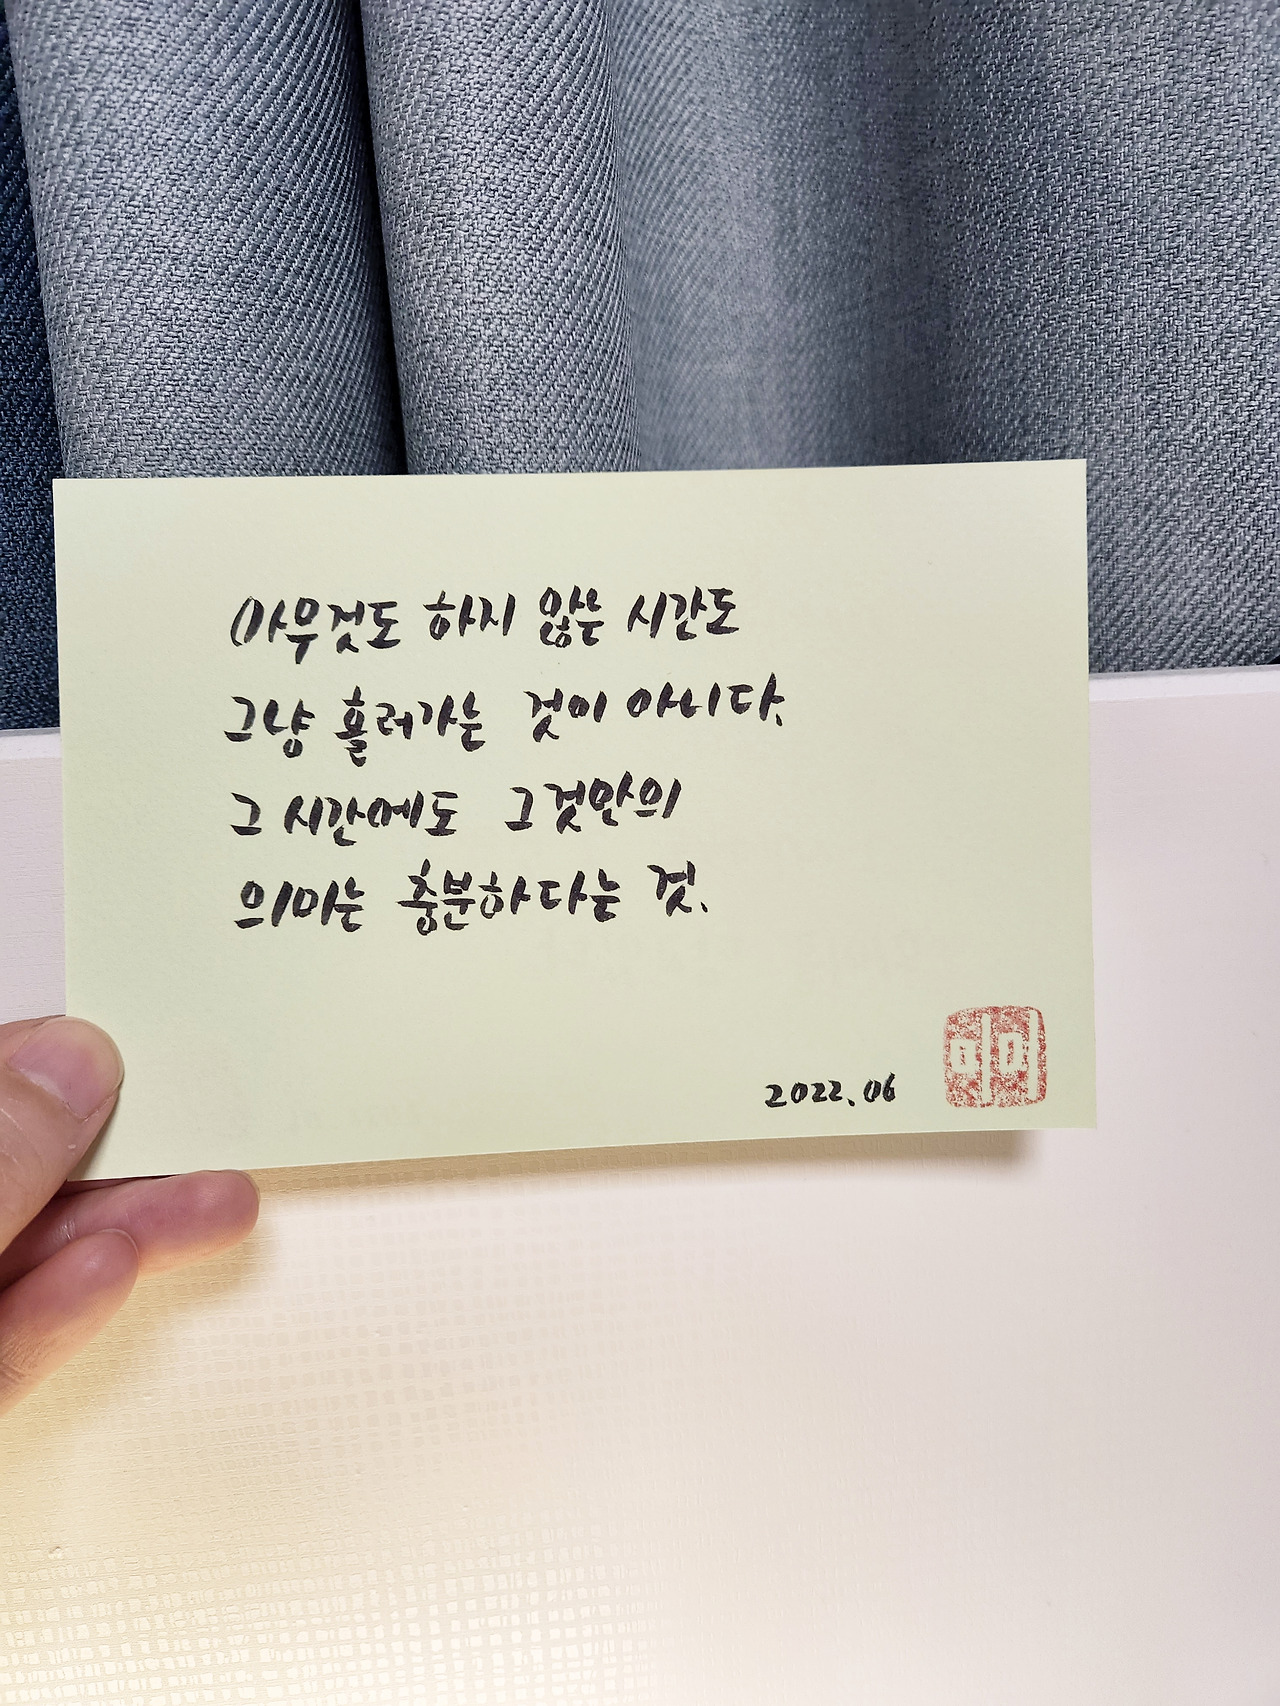 아무것도 하지 않는 시간도
그냥 흘러가는 것이 아니다.
그 시간에도 그것만의
의미는 충분하다는 것.
2022.06